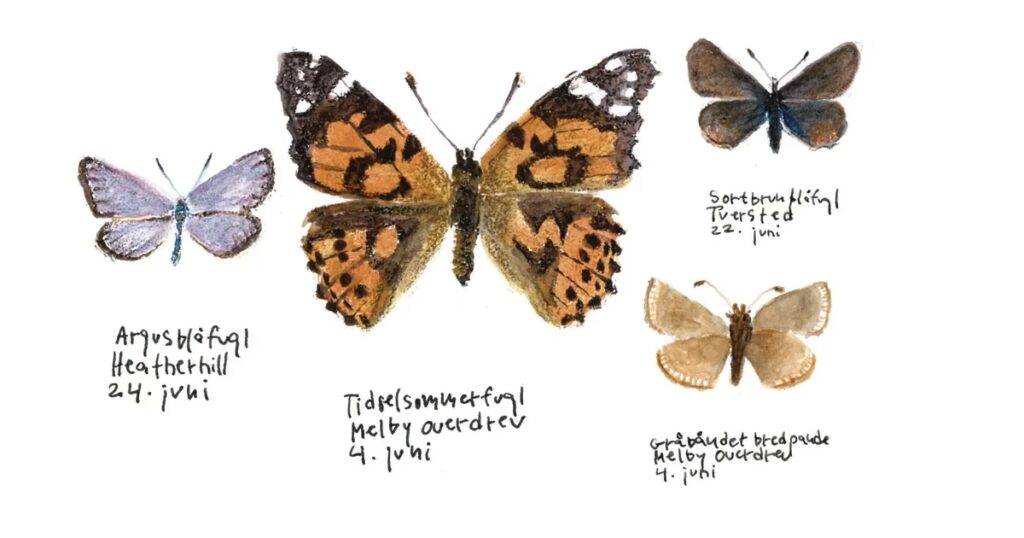 Argusblåfugl
Heatherhill
24. juni
Tidselsommerfugl
Melby overdrev
4. juni
Sortbrun blåfugl
Tversted
22. juni
Gråbåndet bredpande
Melby overdrev
4. juni